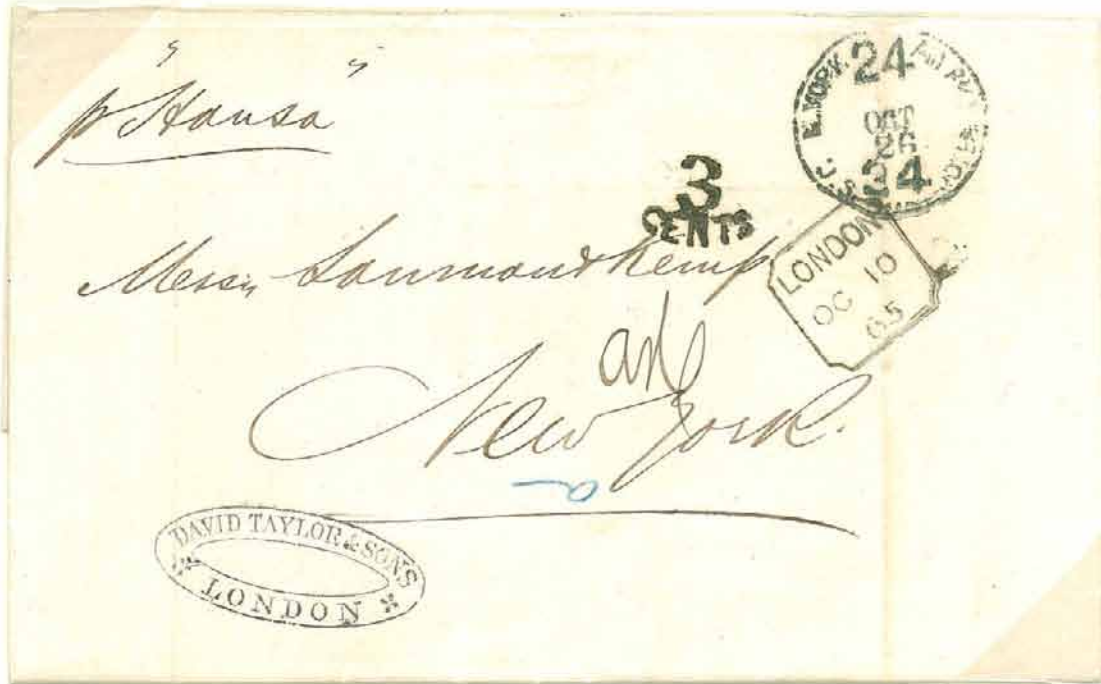 p "Hansa"
24
OCT
26
24
3
CENTS
LONDON
OC 10
65
Messrs Lanman & Kemp
New York.
DAVID TAYLOR & SONS
LONDON